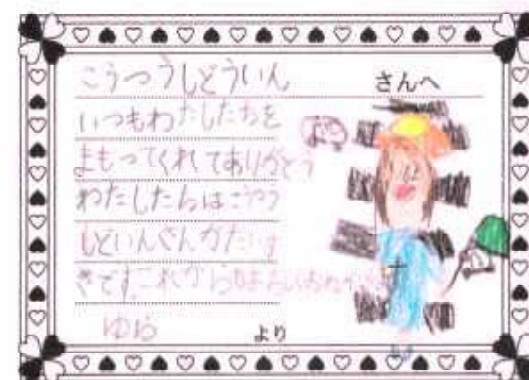 こうつうしどういん さんへ
いつもわたしたちを
まもってくれてありがとう
わたしたちはこうつう
しどいんさんがだいす
きです。これからもよろしくおねがい
ゆら より